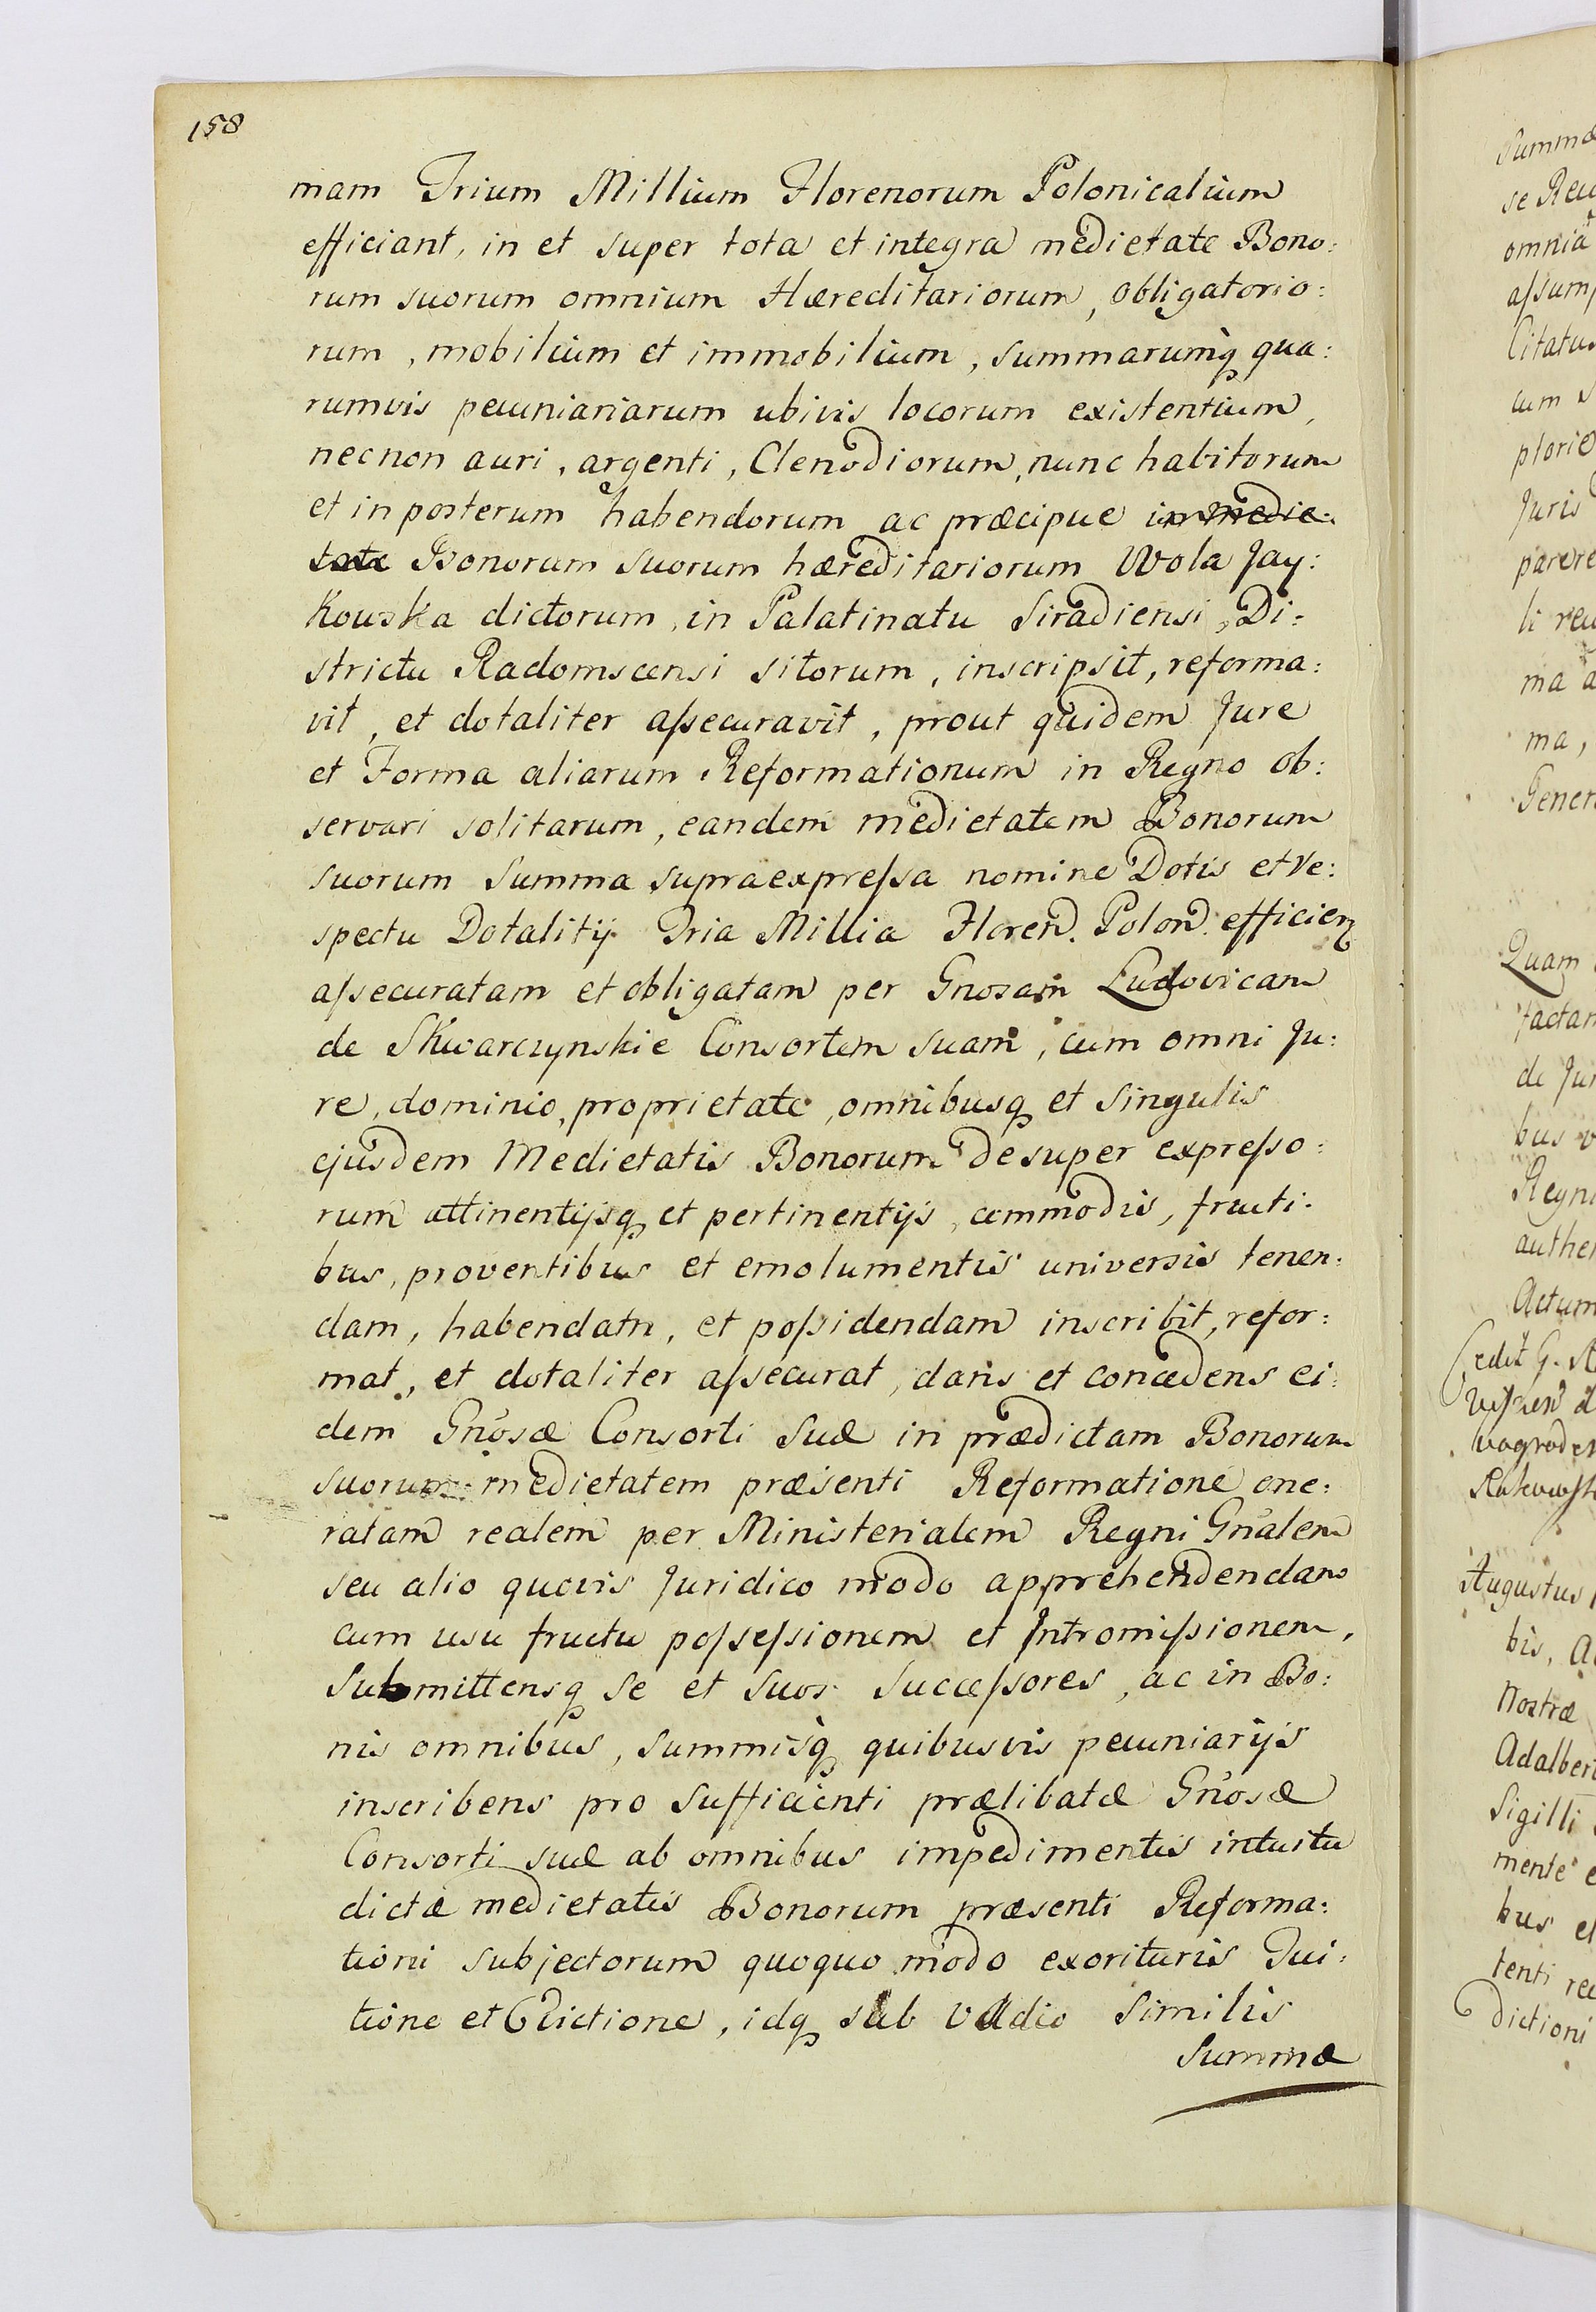 158
mam Trium Millium Florenorum Polonicalium
efficiant, in et super tota et integra medietate Bono:
rum suorum omnium Hæreditariorum, obligatorio:
rum, mobilium et immobilium, summarumq́ qua:
rumvis pecuniariarum ubivis locorum existentium,
necnon auri, argenti, Clenodiorum, nunc habitorum
et in posterum habendorum ac præcipue in medie:
tate Bonorum suorum hæreditariorum Wola Jay:
kowska dictorum, in Palatinatu Siradiensi, Di:
strictu Radomscensi sitorum, inscripsit, reforma:
vit, et dotaliter aſsecuravit, prout quidem Jure
et Forma aliarum Reformationum in Regno ob:
servari solitarum, eandem medietatem Bonorum
suorum Summa supraexpreſsa nomine Dotis et Re:
spectu Dotalitij Tria Millia Floren. Polon. efficien
aſsecuratam et obligatam per Gnosam Ludovicam
de Skwarczynskie Consortem suam, cum omni Ju:
re, dominio, proprietate, omnibusq et singulis
ejusdem Medietatis Bonorum desuper expreſso:
rum attinentijsq et pertinentijs, commodis, fructi:
bus, proventibus et emolumentis universis tenen:
dam, habendam, et poſsidendam inscribit, refor:
mat, et dotaliter aſsecurat, dans et concedens ei:
dem Gnosæ Consorti Suæ in prædictam Bonorum
suorum medietatem præsenti Reformatione one:
ratam realem per Ministerialem Regni Gnalem
seu alio quovis Juridico modo apprehendendam
cum usu fructu poſseſsionem et Intromiſsionem,
Submittensq se et suos Succeſsores, ac in Bo:
nis omnibus, summisq́ quibusvis pecuniarijs
inscribens pro sufficienti prælibatæ Gnosæ
Consorti suæ ab omnibus impedimentis intuitu
dictæ medietatis Bonorum præsenti Reforma:
tioni subjectorum quoquo modo exorituris Tui:
tione et Evictione, idq sub vadio similis
Summæ
Summæ
omnia
Citatus
cum
Juris
parere
ma
ma,
Quam
de Jur
bus
Regni
Actum
Augustus
bis,
Nostræ
Sigilli
mente
bus et
tenti
dictioni